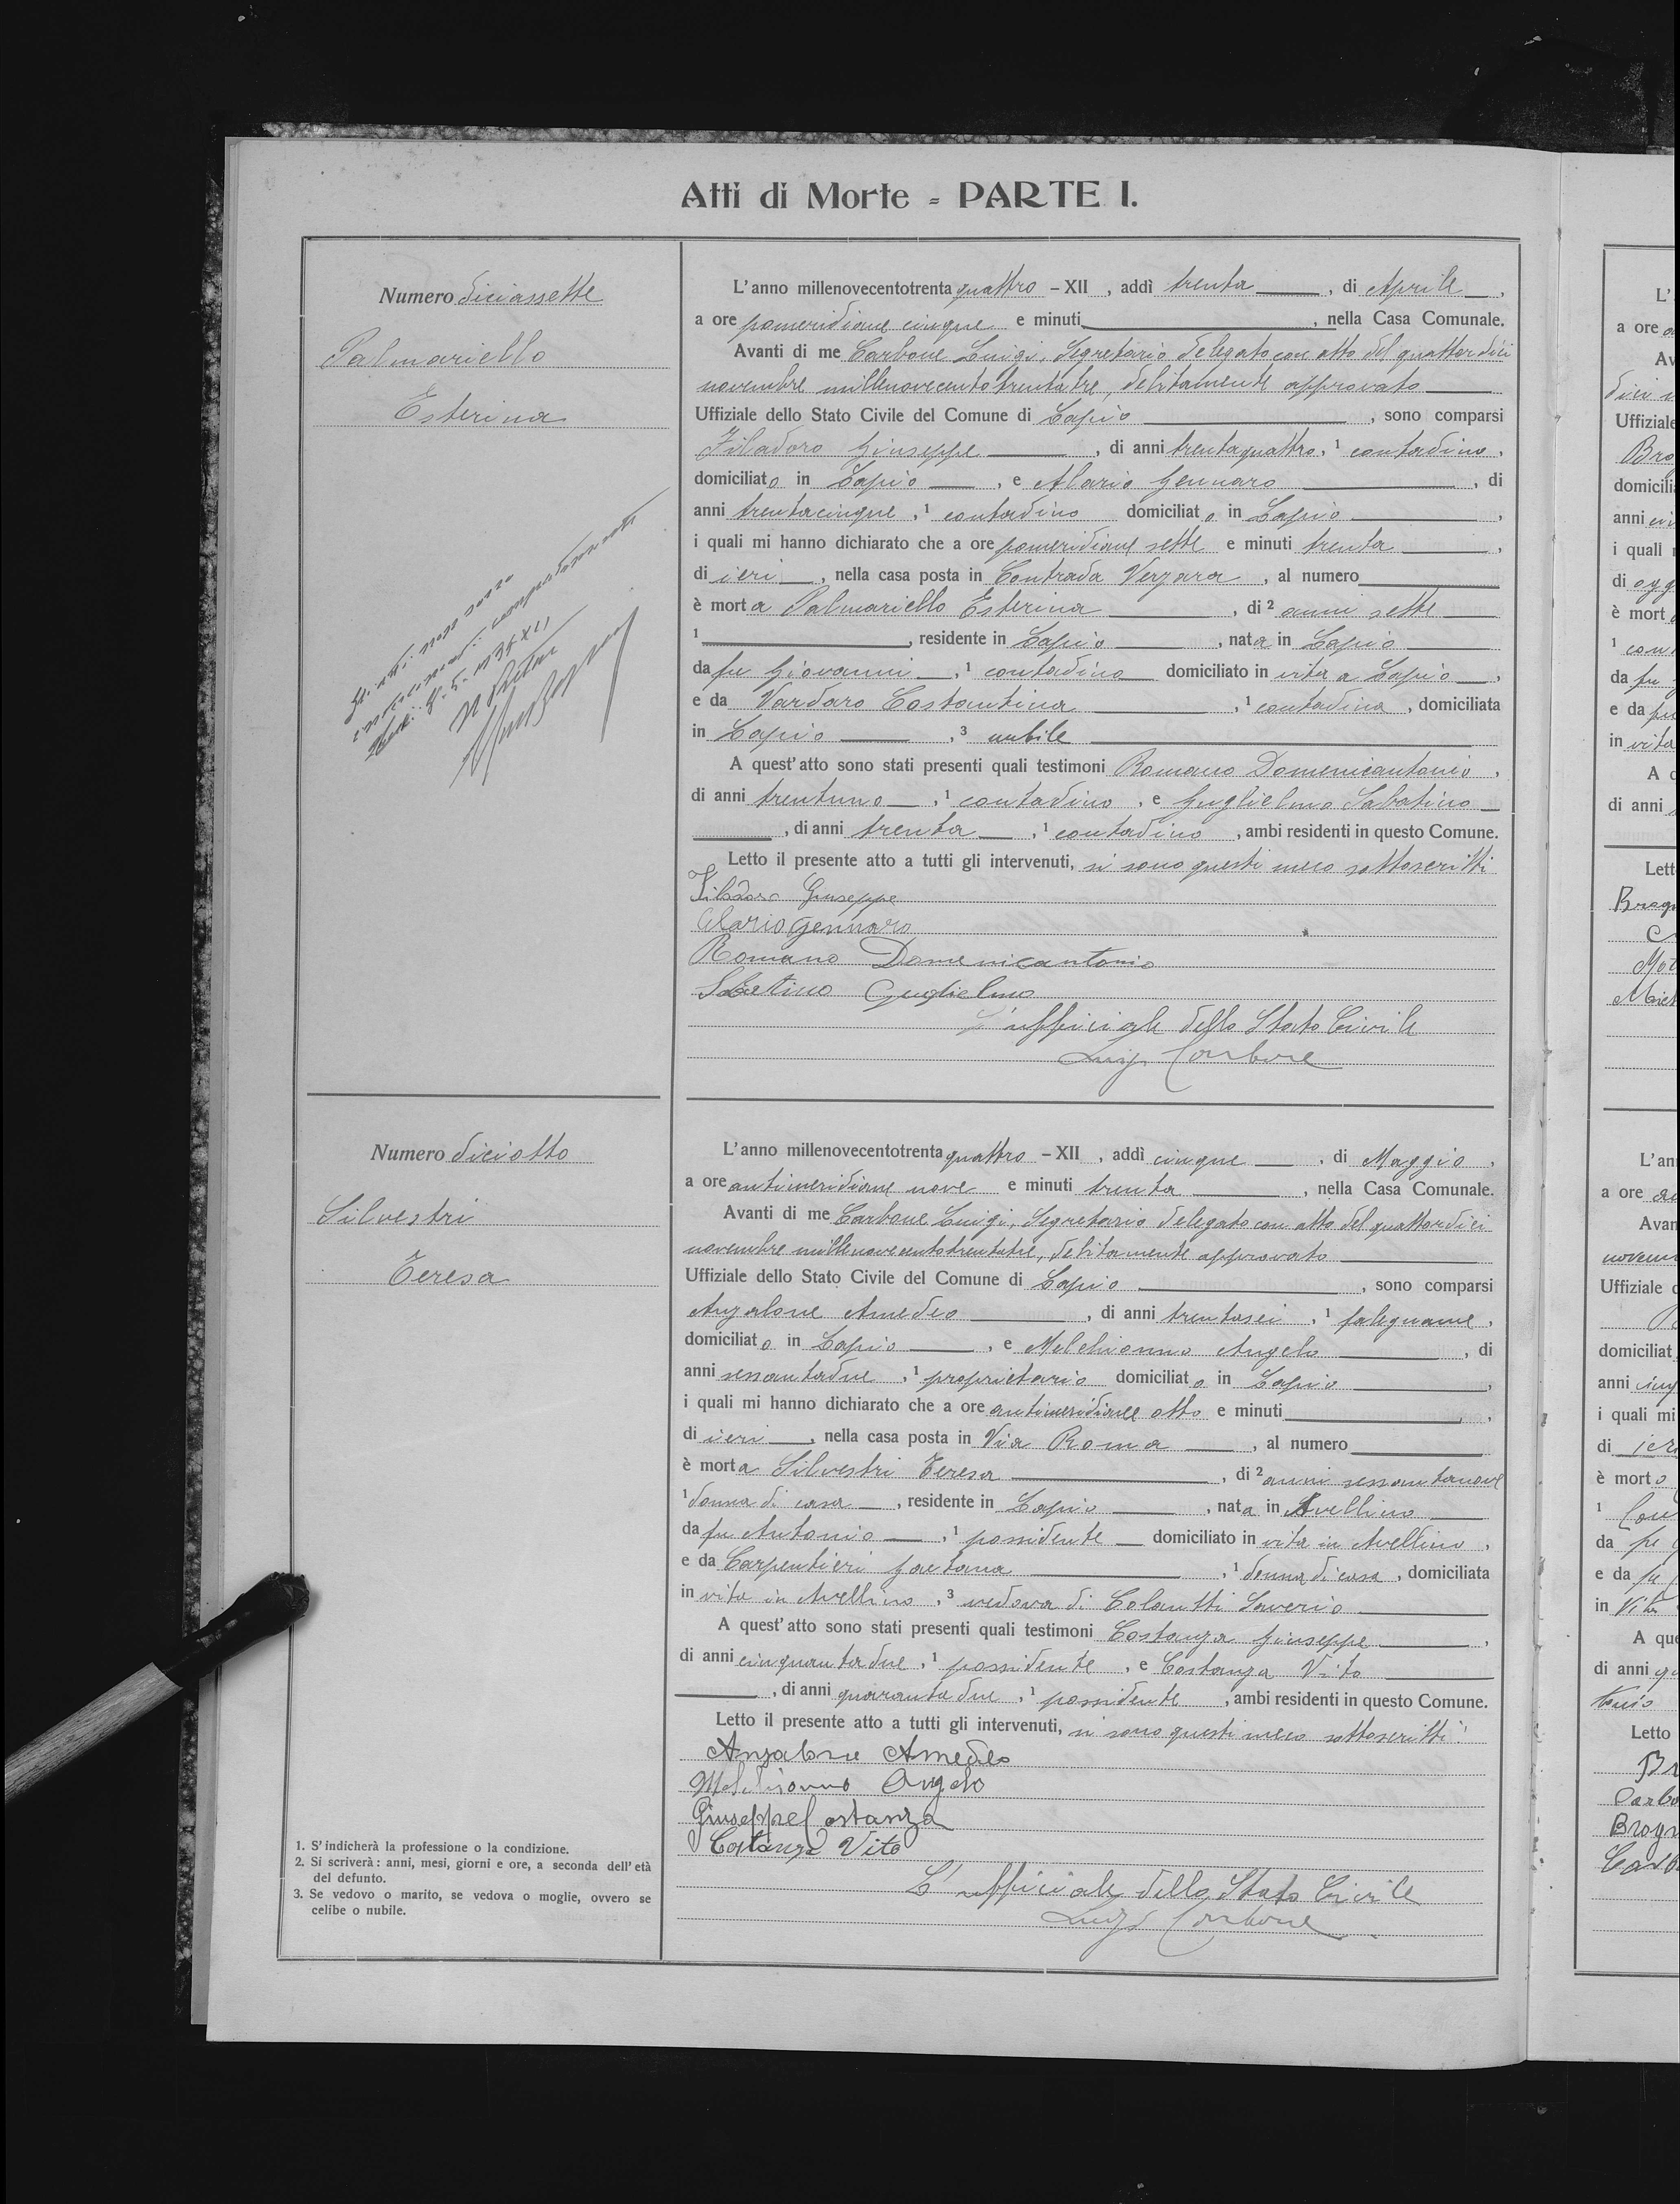 Atti di Morte = PARTE I.
Numero diciassette
Palmariello
Esterina
L'anno millenovecentotrenta quattro – XII , addì trenta , di Aprile ,
a ore pomeridiane cinque e minuti , nella Casa Comunale.
Avanti di me Carbone Luigi, Segretario delegato con atto del quattordici
novembre millenovecentotrentatre, debitamente approvato
Uffiziale dello Stato Civile del Comune di Lapio , sono comparsi
Filadoro Giuseppe , di anni trentaquattro, 1 contadino,
domiciliato in Lapio , e Alario Gennaro , di
anni trentacinque , 1 contadino domiciliato in Lapio ,
i quali mi hanno dichiarato che a ore pomeridiane sette e minuti trenta ,
di ieri , nella casa posta in Contrada Verzara , al numero
è morta Palmariello Esterina , di 2 anni sette
1 , residente in Lapio , nata in Lapio
da fu Giovanni , 1 contadino domiciliato in vita a Lapio ,
e da Vardaro Costantina , 1 contadina , domiciliata
in Lapio , 3 nubile
A quest'atto sono stati presenti quali testimoni Romano Domenicantonio ,
di anni trentuno , 1 contadino , e Guglielmo Sabatino
, di anni trenta , 1 contadino , ambi residenti in questo Comune.
Letto il presente atto a tutti gli intervenuti, si sono questi meco sottoscritti
Filadoro Giuseppe
Alario Gennaro
Romano Domenicantonio
Sabatino Guglielmo
L'ufficiale dello Stato Civile
Luigi Carbone
Numero diciotto
Silvestri
Teresa
L'anno millenovecentotrenta quattro – XII , addì cinque , di Maggio ,
a ore antimeridiane nove e minuti trenta , nella Casa Comunale.
Avanti di me Carbone Luigi, Segretario delegato con atto del quattordici
novembre millenovecentotrentatre, debitamente approvato
Uffiziale dello Stato Civile del Comune di Lapio , sono comparsi
Anzalone Amedeo , di anni trentasei , 1 falegname ,
domiciliato in Lapio , e Melchionno Angelo , di
anni sessantadue , 1 proprietario domiciliato in Lapio ,
i quali mi hanno dichiarato che a ore antimeridiane otto e minuti ,
di ieri , nella casa posta in Via Roma , al numero
è morta Silvestri Teresa , di 2 anni sessantanove
1 donna di casa , residente in Lapio , nata in Avellino
da fu Antonio , 1 possidente domiciliato in vita in Avellino ,
e da Carpentieri Gaetana , 1 donna di casa , domiciliata
in vita in Avellino , 3 vedova di Colantti Saverio
A quest'atto sono stati presenti quali testimoni Costanza Giuseppe ,
di anni cinquantadue , 1 possidente , e Costanza Vito
, di anni quarantadue , 1 possidente , ambi residenti in questo Comune.
Letto il presente atto a tutti gli intervenuti, si sono questi meco sottoscritti
Anzalone Amedeo
Melchionno Angelo
Giuseppe Costanza
Costanza Vito
L'ufficiale dello Stato Civile
Luigi Carbone
1. S'indicherà la professione o la condizione.
2. Si scriverà: anni, mesi, giorni e ore, a seconda dell'età
del defunto.
3. Se vedovo o marito, se vedova o moglie, ovvero se
celibe o nubile.